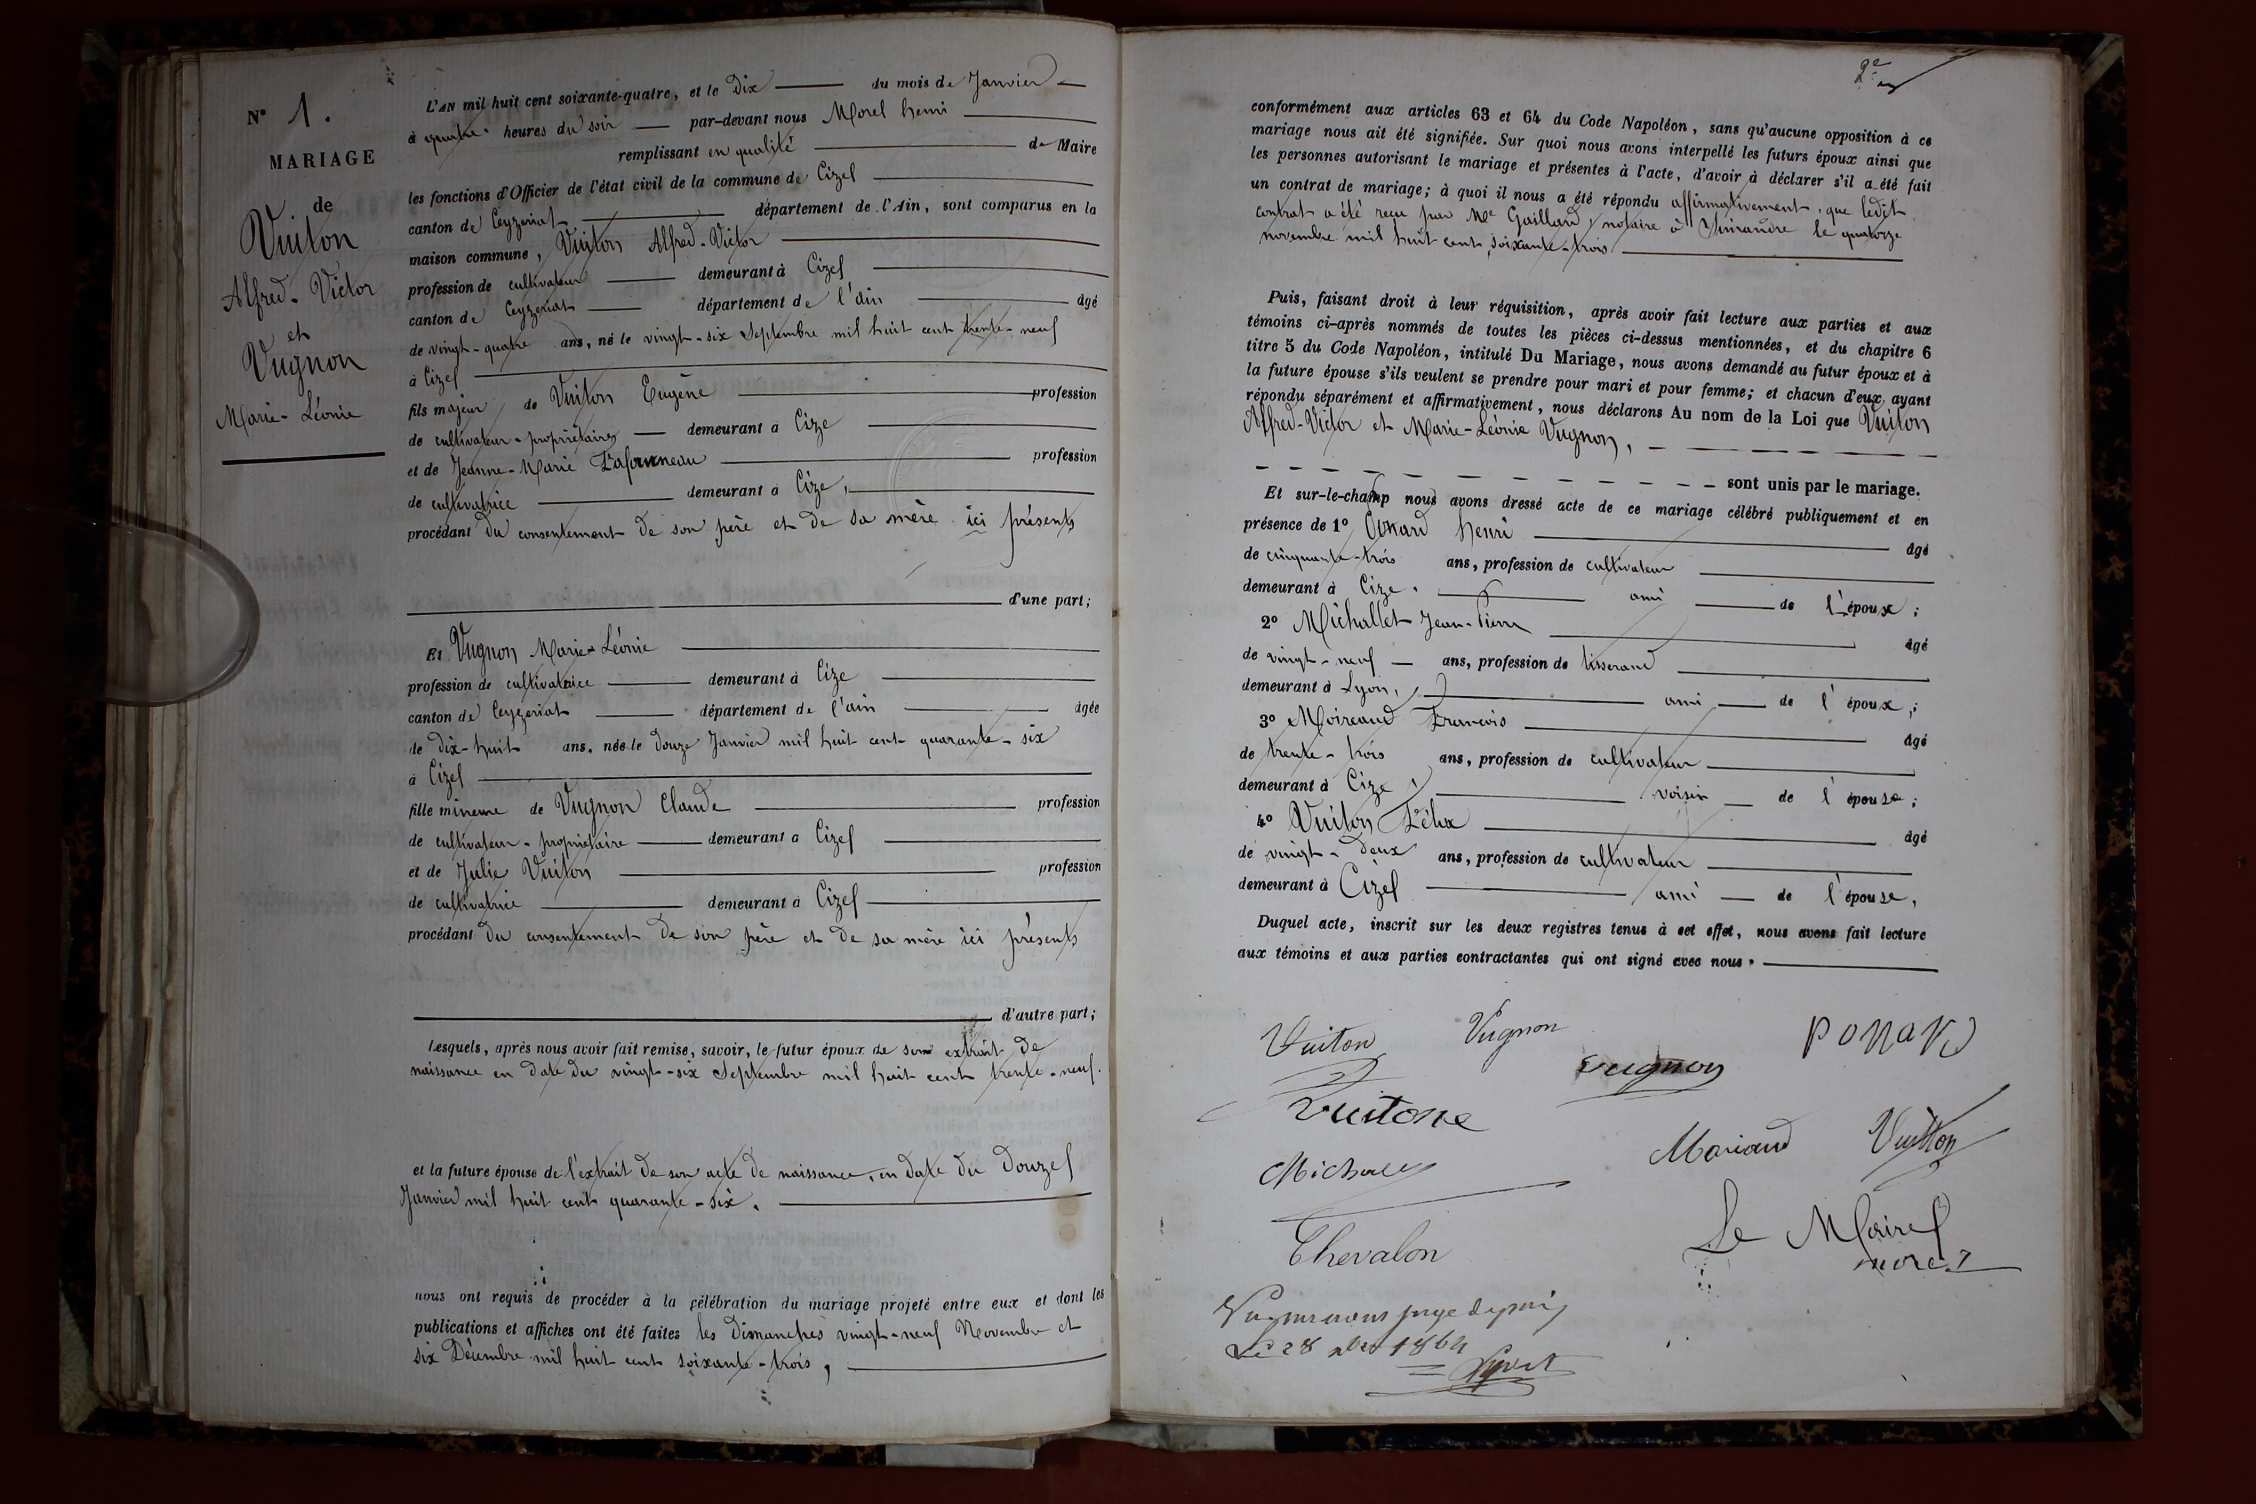 N° 1.
MARIAGE
de
Vuiton
Alfred-Victor
et
Vugnon
Marie-Léonie
L'AN mil huit cent soixante-quatre, et le Dix du mois de Janvier
à quatre heures du soir par-devant nous Morel henri
remplissant en qualité de Maire
les fonctions d'Officier de l'état civil de la commune de Cize
canton de Ceyzeriat département de l'Ain, sont comparus en la
maison commune, Vuiton Alfred-Victor
profession de cultivateur demeurant à Cize
canton de Ceyzeriat département de l'ain âgé
de vingt-quatre ans, né le vingt-six Septembre mil huit cent trente-neuf
à Cize
fils majeur de Vuiton Eugène profession
de cultivateur-propriétaire demeurant à Cize
et de Jeanne-Marie profession
de cultivatrice demeurant à Cize,
procédant du consentement de son père et de sa mère ici présents
d'une part;
Et Vugnon Marie-Léonie
profession de cultivatrice demeurant à Cize
canton de Ceyzeriat département de l'ain âgée
de dix-huit ans, née le douze Janvier mil huit cent quarante-six
à Cize
fille mineure de Vugnon Claude profession
de cultivateur-propriétaire demeurant à Cize
et de Julie Vuiton profession
de cultivatrice demeurant à Cize
procédant du consentement de son père et de sa mère ici présents
d'autre part;
Lesquels, après nous avoir fait remise, savoir, le futur époux de son extrait de
naissance en date du vingt-six Septembre mil huit cent trente-neuf.
et la future épouse de l'extrait de son acte de naissance, en date du Douze
Janvier mil huit cent quarante-six.
nous ont requis de procéder à la célébration du mariage projeté entre eux et dont les
publications et affiches ont été faites les Dimanches vingt-neuf Novembre et
six Décembre mil huit cent soixante-trois,
2e
conformément aux articles 63 et 64 du Code Napoléon, sans qu'aucune opposition à ce
mariage nous ait été signifiée. Sur quoi nous avons interpellé les futurs époux ainsi que
les personnes autorisant le mariage et présentes à l'acte, d'avoir à déclarer s'il a été fait
un contrat de mariage; à quoi il nous a été répondu affirmativement, que ledit
contrat a été recu par Me Gaillard, notaire à le quatorze
novembre mil huit cent soixante-trois
Puis, faisant droit à leur réquisition, après avoir fait lecture aux parties et aux
témoins ci-après nommés de toutes les pièces ci-dessus mentionnées, et du chapitre 6
titre 5 du Code Napoléon, intitulé Du Mariage, nous avons demandé au futur époux et à
la future épouse s'ils veulent se prendre pour mari et pour femme; et chacun d'eux ayant
répondu séparément et affirmativement, nous déclarons Au nom de la Loi que Vuiton
Alfred-Victor et Marie-Léonie Vugnon,
sont unis par le mariage.
Et sur-le-champ nous avons dressé acte de ce mariage célébré publiquement et en
présence de 1° henri âgé
de cinquante-trois ans, profession de cultivateur
demeurant à Cize, ami de l'époux;
2° Michallet Jean-Pierre âgé
de vingt-neuf ans, profession de tisserand
demeurant à Lyon, ami de l'époux;
3° François âgé
de trente-trois ans, profession de cultivateur
demeurant à Cize, voisin de l'épouse;
4° Vuiton Félix âgé
de vingt-deux ans, profession de cultivateur
demeurant à Cize ami de l'épouse,
Duquel acte, inscrit sur les deux registres tenus à cet effet, nous avons fait lecture
aux témoins et aux parties contractantes qui ont signé avec nous.
Vuiton Vugnon ponard
vugnon
Vuitone
Moriaud Vuitton
Le Maire
morel
Chevalon